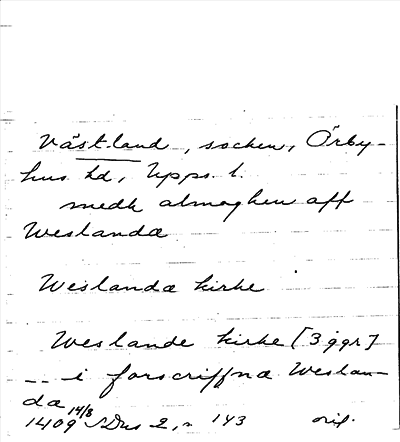 Västland, socken, Örby-
hus hd, Upps. l.
medh almoghen aff
Weslanda
Weslanda kirke
Weslande kirke [3 ggr]
-- i forscriffna Weslan-
da
1409 14/8 SDns 2, n 143 orig.